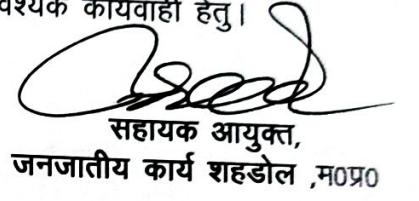 कार्यवाही हेतु।
सहायक आयुक्त,
जनजातीय कार्य शहडोल ,म0प्र0